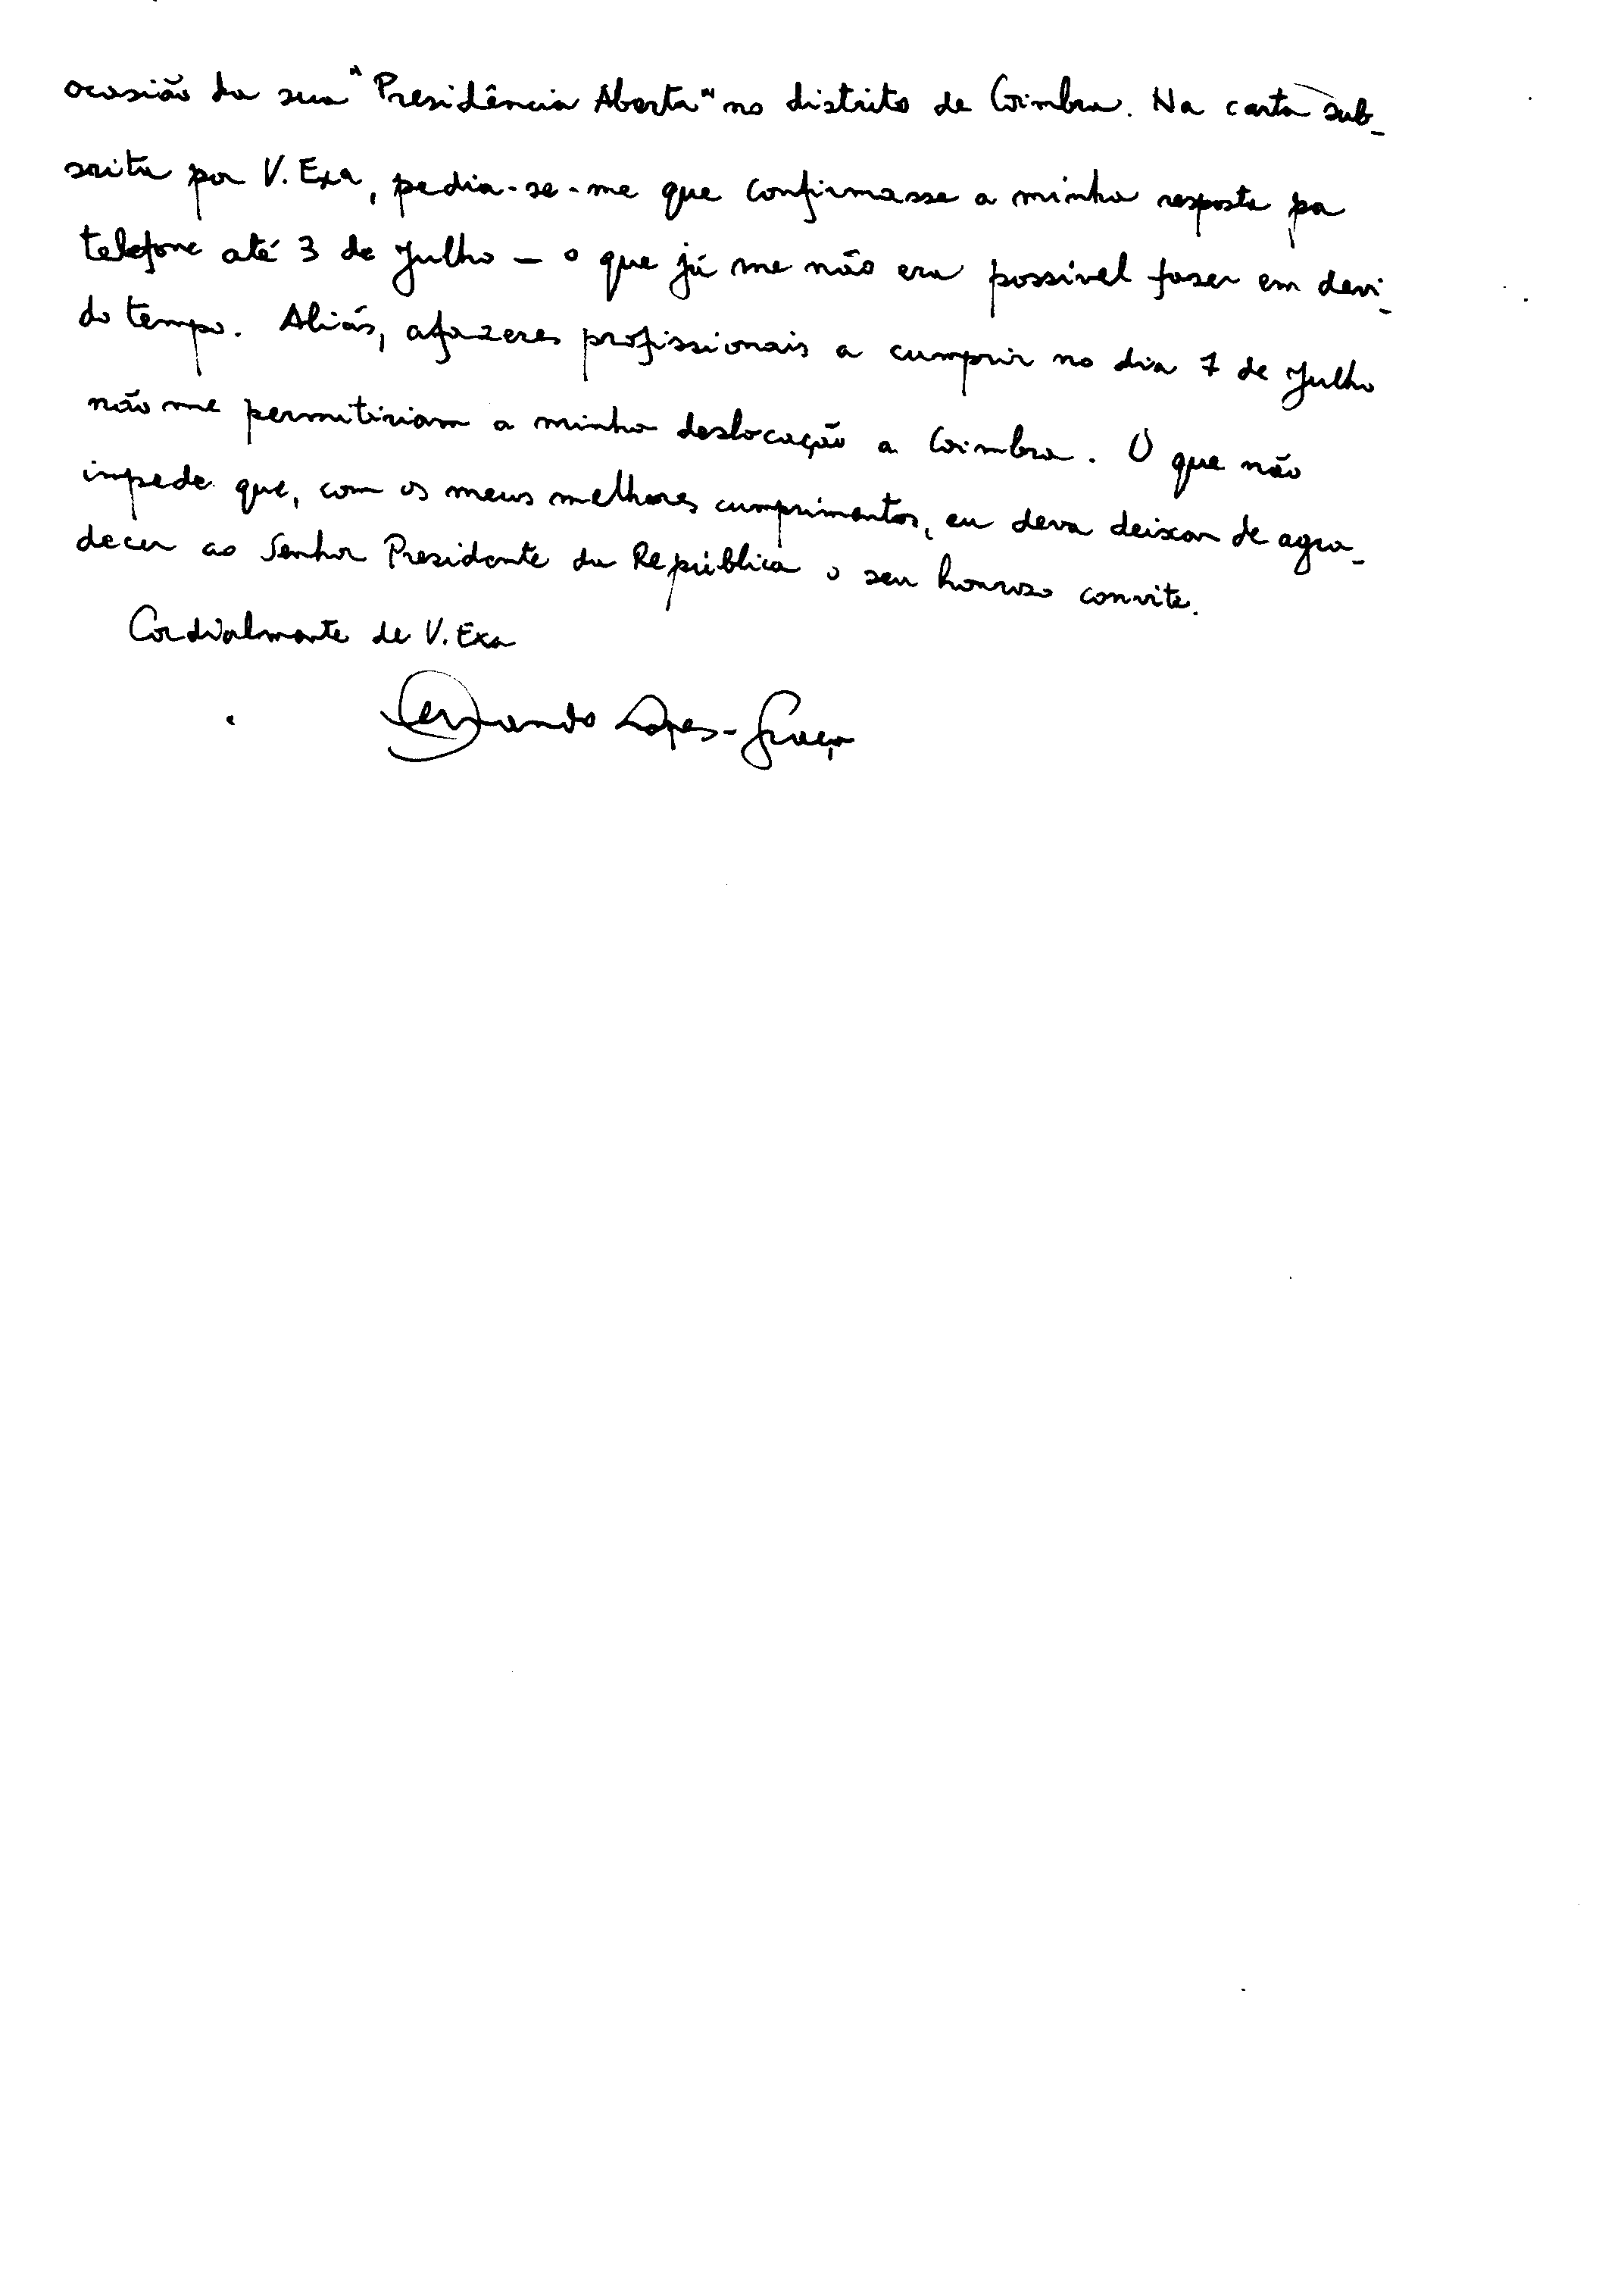 ocasião da sua "Presidência Aberta" no distrito de Coimbra. Na carta sub-
scrita por V. Exa, pedia-se-me que confirmasse a minha resposta por
telefone até 3 de Julho – o que já me não era possível fazer em devi-
do tempo. Aliás, afazeres profissionais a cumprir no dia 7 de Julho
não me permitiriam a minha deslocação a Coimbra. O que não
impede que, com os meus melhores cumprimentos, eu deva deixar de agra-
decer ao Senhor Presidente da República o seu honroso convite.
Cordialmente de V. Exa
Fernando Lopes-Graça